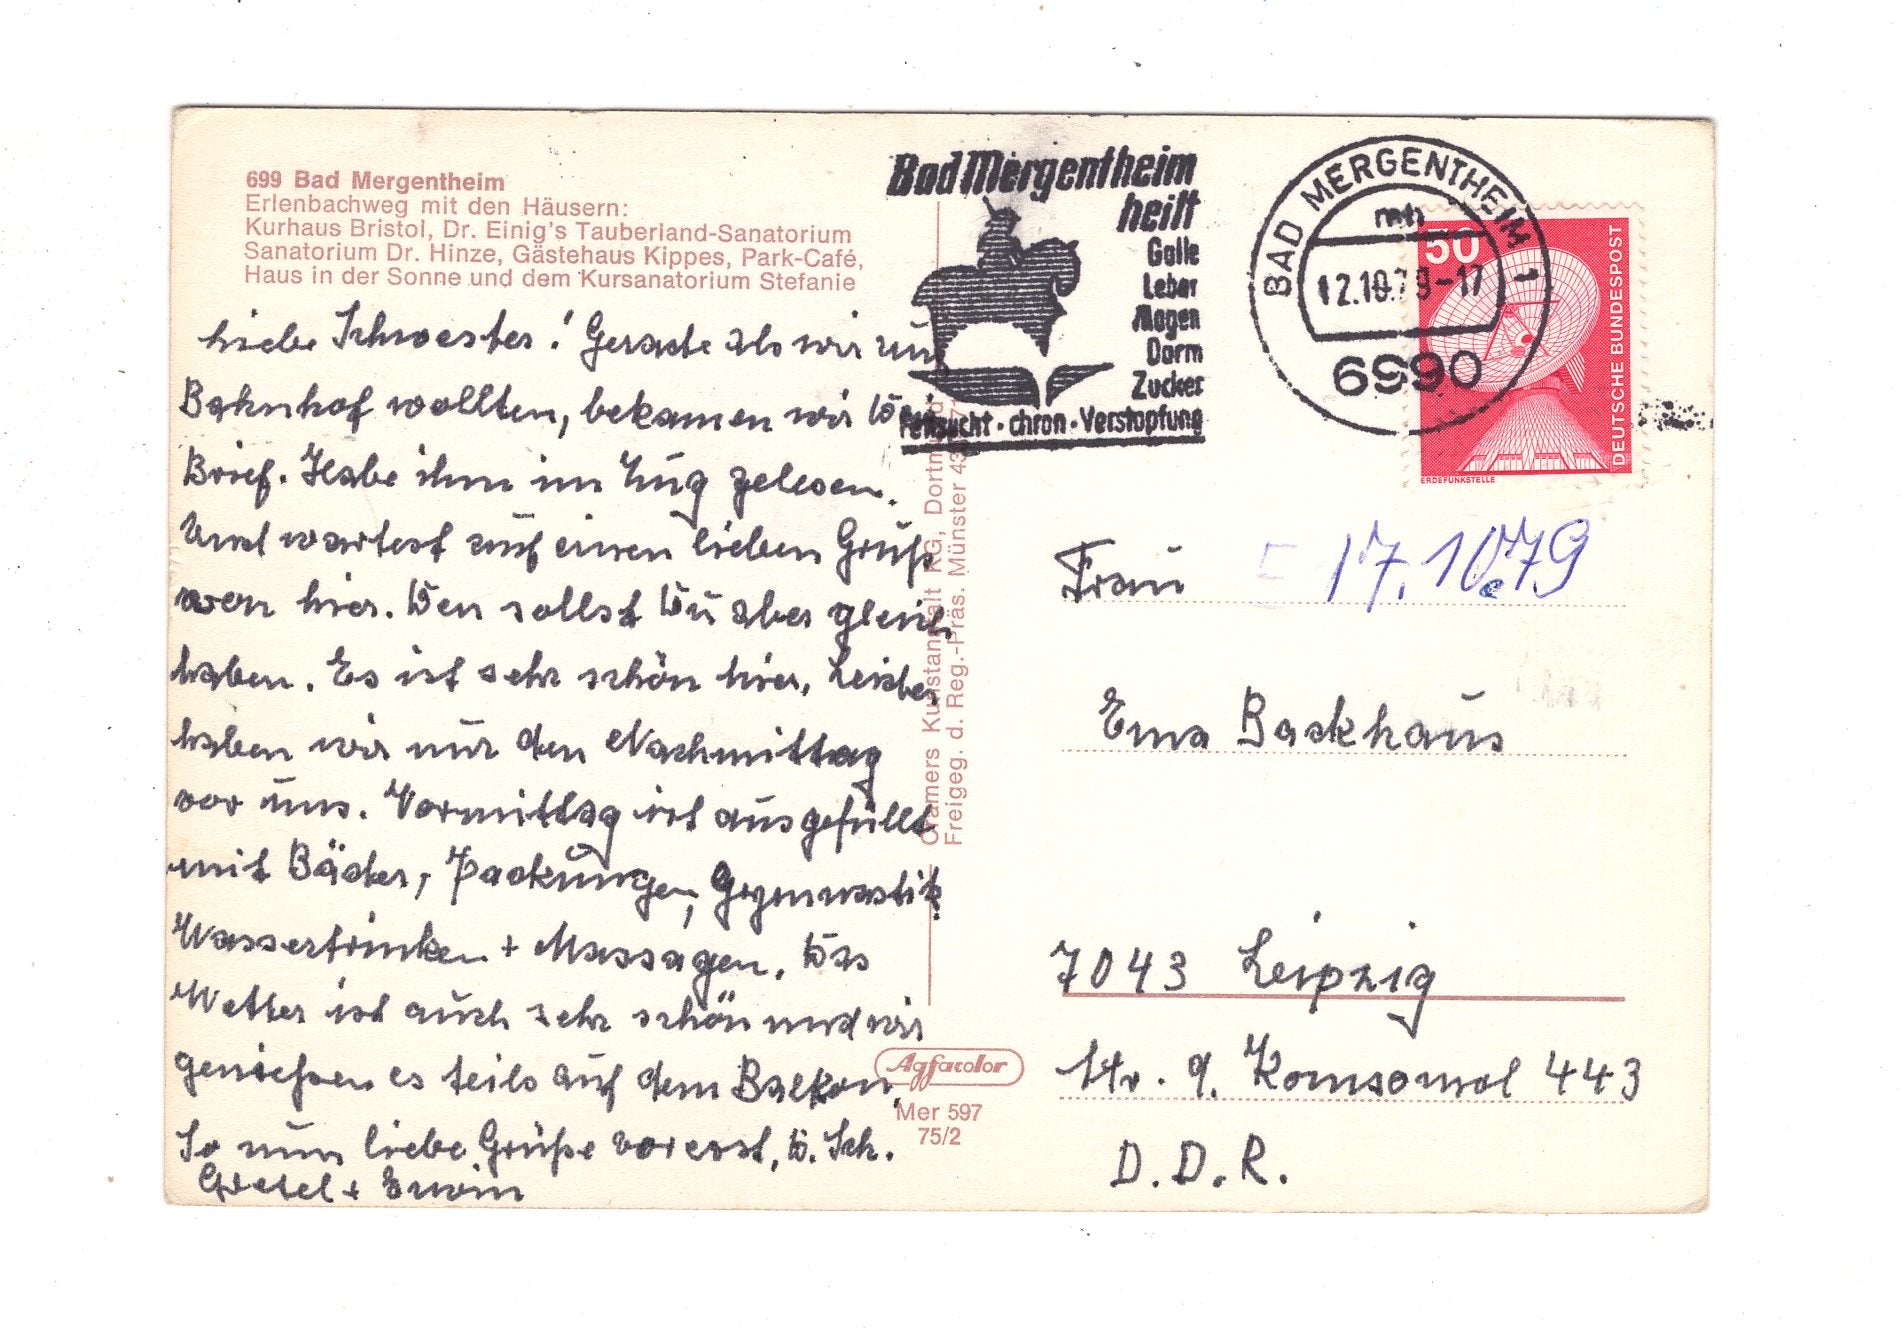 699 Bad Mergentheim
Erlenbachweg mit den Häusern:
Kurhaus Bristol, Dr. Einig's Tauberland-Sanatorium
Sanatorium Dr. Hinze, Gästehaus Kippes, Park-Café,
Haus in der Sonne und dem Kursanatorium Stefanie
Liebe Schwester! Gerade als wir zum
Bahnhof wollten, bekamen wir Dein
Brief. Habe ihm im Zug gelesen.
Und wartest auf einen lieben Gruß
von hier. Den sollst Du aber gleich
haben. Es ist sehr schön hier, Leider
haben wir nur den Nachmittag
vor uns. Vormittag ist ausgefüllt
mit Bäder, Packungen, Gymnastik
Wassertrinken + Massagen. Das
Wetter ist auch sehr schön und wir
genießen es teils auf dem Balkon.
So nun liebe Grüße vorerst, D. Sch.
Gretel + Erwin
Cramers Kunstanstalt KG, Dortmund
Freigeg. d. Reg.-Präs. Münster
Agfacolor
Mer 597
75/2
Bad Mergentheim
heilt
Galle
Leber
Magen
Darm
Zucker
Fettsucht · chron · Verstopfung
BAD MERGENTHEIM 1
mh
12.10.79-17
6990
50
DEUTSCHE BUNDESPOST
ERDEFUNKSTELLE
Frau
17.10.79
Erna Backhaus
7043 Leipzig
Str. d. Komsomol 443
D.D.R.